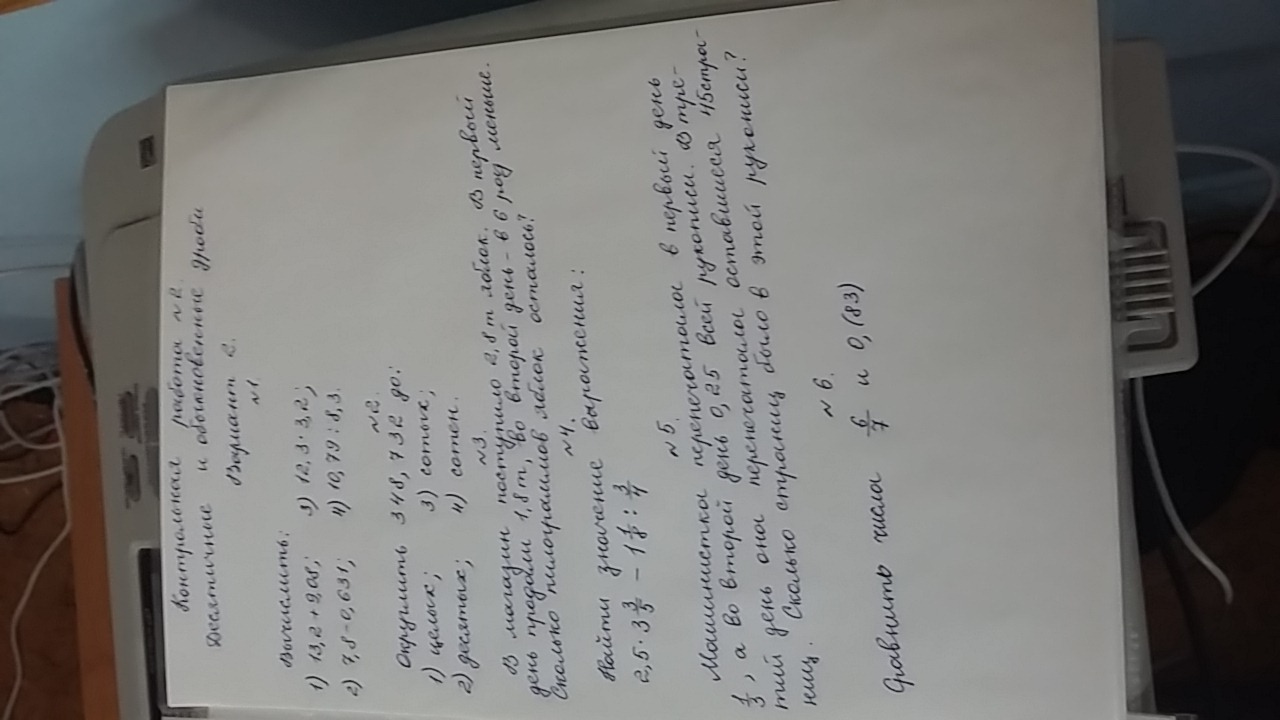 Контрольная работа №2.
Десятичные и обыкновенные дроби
Вариант 2.
№1
Вычислить:
1) 13,2 + 9,08; 3) 12,3 · 3,2;
2) 7,8 - 0,631; 4) 10,79 : 8,3.
№2.
Округлить 348,732 до:
1) целых; 3) сотых;
2) десятых; 4) сотен.
№3.
В магазин поступило 2,8 т яблок. В первый
день продали 1,8 т, во второй день - в 6 раз меньше.
Сколько килограммов яблок осталось?
№4.
Найти значение выражения:
2,5 · 3 3/5 - 1 1/8 : 3/4
№5.
Машинистка перепечатала в первый день
1/3, а во второй день 0,25 всей рукописи. В тре-
тий день она перепечатала оставшиеся 45 стра-
ниц. Сколько страниц было в этой рукописи?
№6.
Сравнить числа 6/7 и 0,(83)